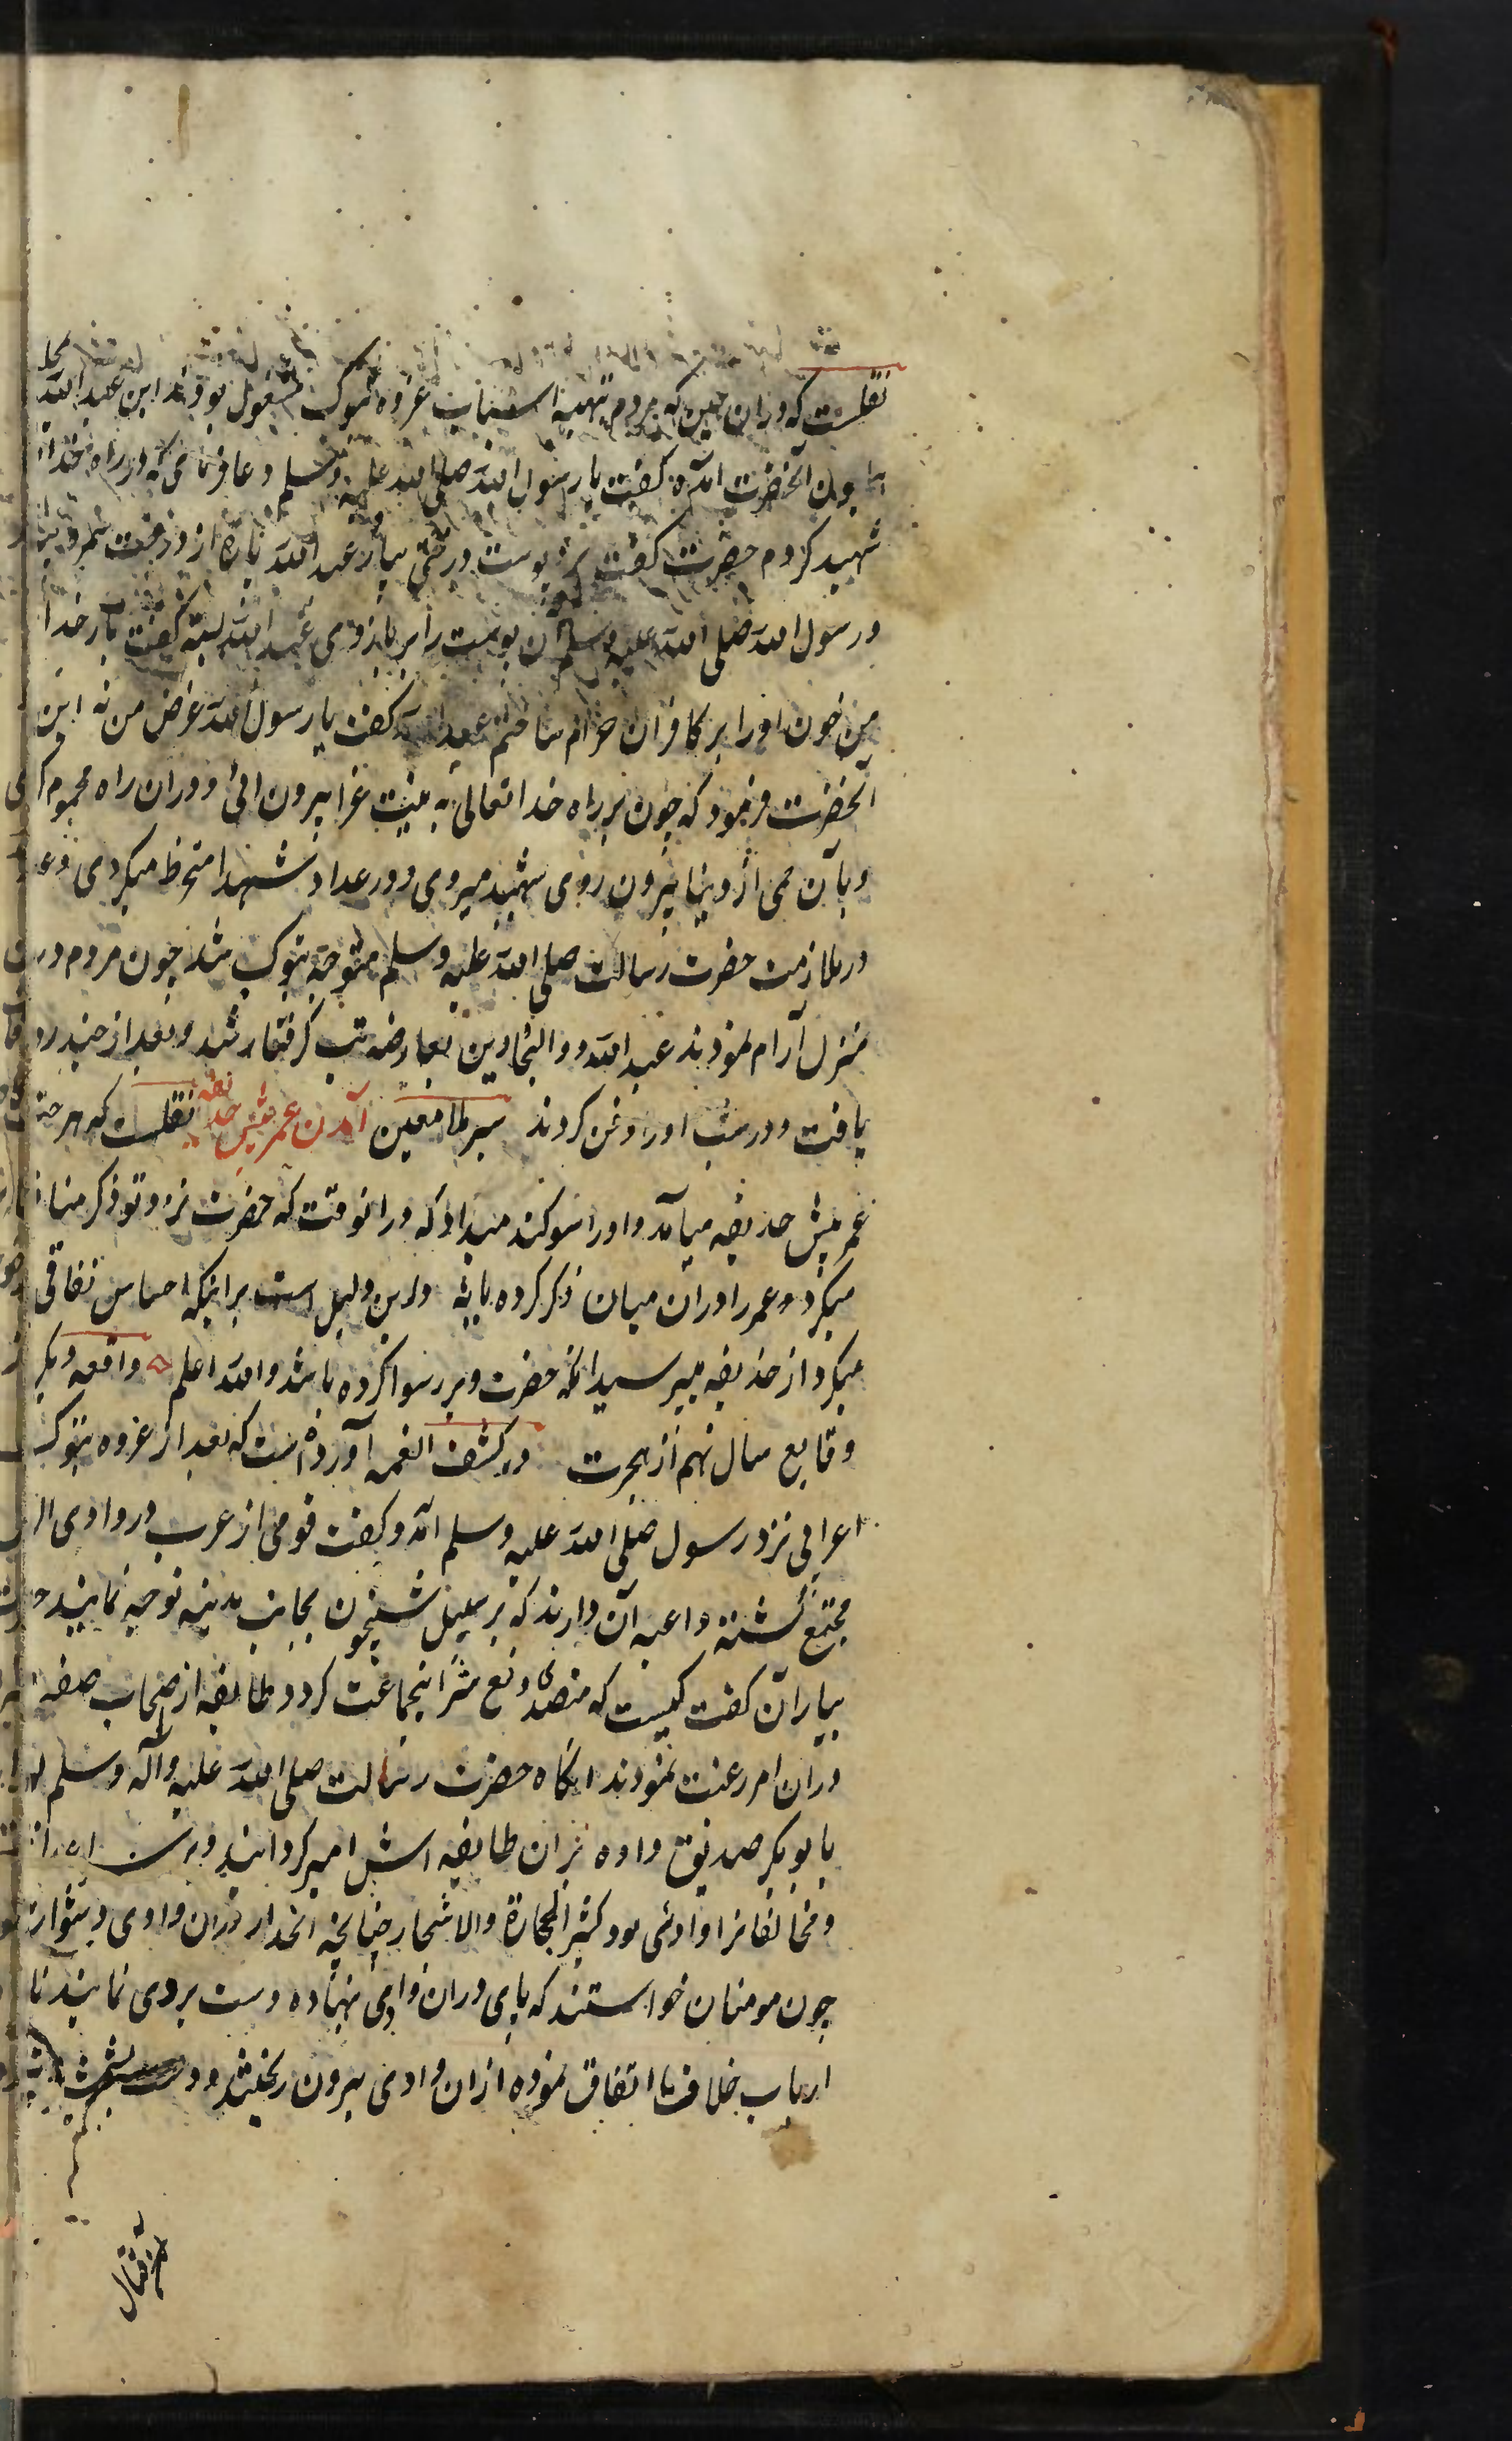 نقلست که دران حین که مردم بتهیه اسباب غزوه تبوک مشغول بودند این عبدالله
همایون آنحضرت آمده گفت یا رسول الله صلی الله علیه وسلم دعا فرمای که در راه خدا
شهید کردم حضرت گفت برو پوست درختی بیار عبدالله پارهٔ از درخت
و رسول الله صلی الله علیه وسلم آن پوست را بر بازوی عبدالله بسته گفت بار خدا
من خون او را بر کافران حرام ساختم عبدالله گفت یا رسول الله غرض من نه این
آنحضرت فرمود که چون بر راه خدا تعالی به نیت غزا بیرون ائی و دران راه محموم
و بآن حمی از دنیا بیرون روی شهید میروی و در عداد شهدا منخرط میکردی
در ملازمت حضرت رسالت صلی الله علیه وسلم متوجه تبوک شد چون مردم در
منزل آرام نمودند عبدالله ذوالبجادین بعارضه تب گرفتار شد و بعد از چند روز
یافت و در شب او را دفن کردند سیر ملا معین آمدن عمر پیش حذیفه نقلست که هر
عمر پیش حذیفه میآمد و او را سوکند میداد که درانوقت که حضرت نزد تو ذکر
میکرد عمر را دران میان ذکر کرده یا نه و این دلیل است بر اینکه احساس نفاقی
میکرد از حذیفه میپرسید انکه حضرت ویرا رسوا کرده باشد والله اعلم واقعه دیکر
وقایع سال نهم از هجرت در کشف الغمه آورده است که بعد از غزوه تبوک
اعرابی نزد رسول صلی الله علیه وسلم آمد و گفت قومی از عرب در وادی
مجتمع گشته داعیه آن دارند که بر سبیل شبیخون بجانب مدینه توجه نمایند
بیاران گفت کیست که متصدی دفع شر اینجماعت کردد طایفه از اصحاب صفه
دران امر رغبت نمودند انکاه حضرت رسالت صلی الله علیه وآله وسلم
بابوبکر صدیق داده بران طایفه اش امیر کردانید
و مخالفانرا وادئی بود کثیر الحجارة والاشجار چنانچه انحدار دران وادی دشوار
چون مومنان خواستند که پای دران وادی نهاده دست بردی نمایند
ارباب خلاف با اتفاق نموده ازان وادی بیرون ریختند و دست